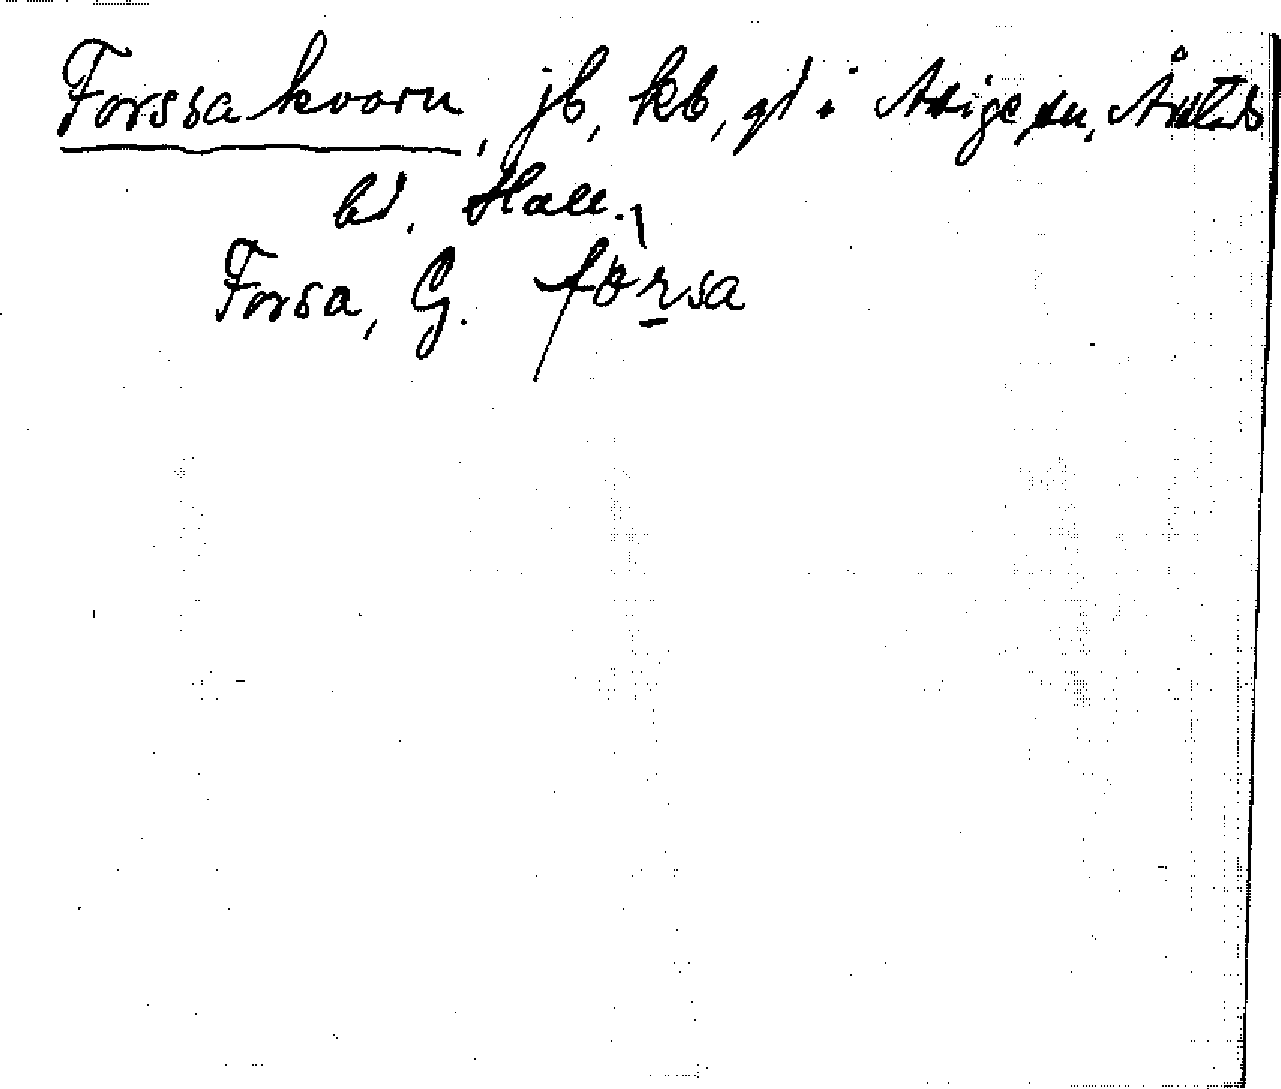 Forssa kvarn, jb, kb, gd i Asige sn, Årstads
hd. Hall.
Forsa, G. forsa